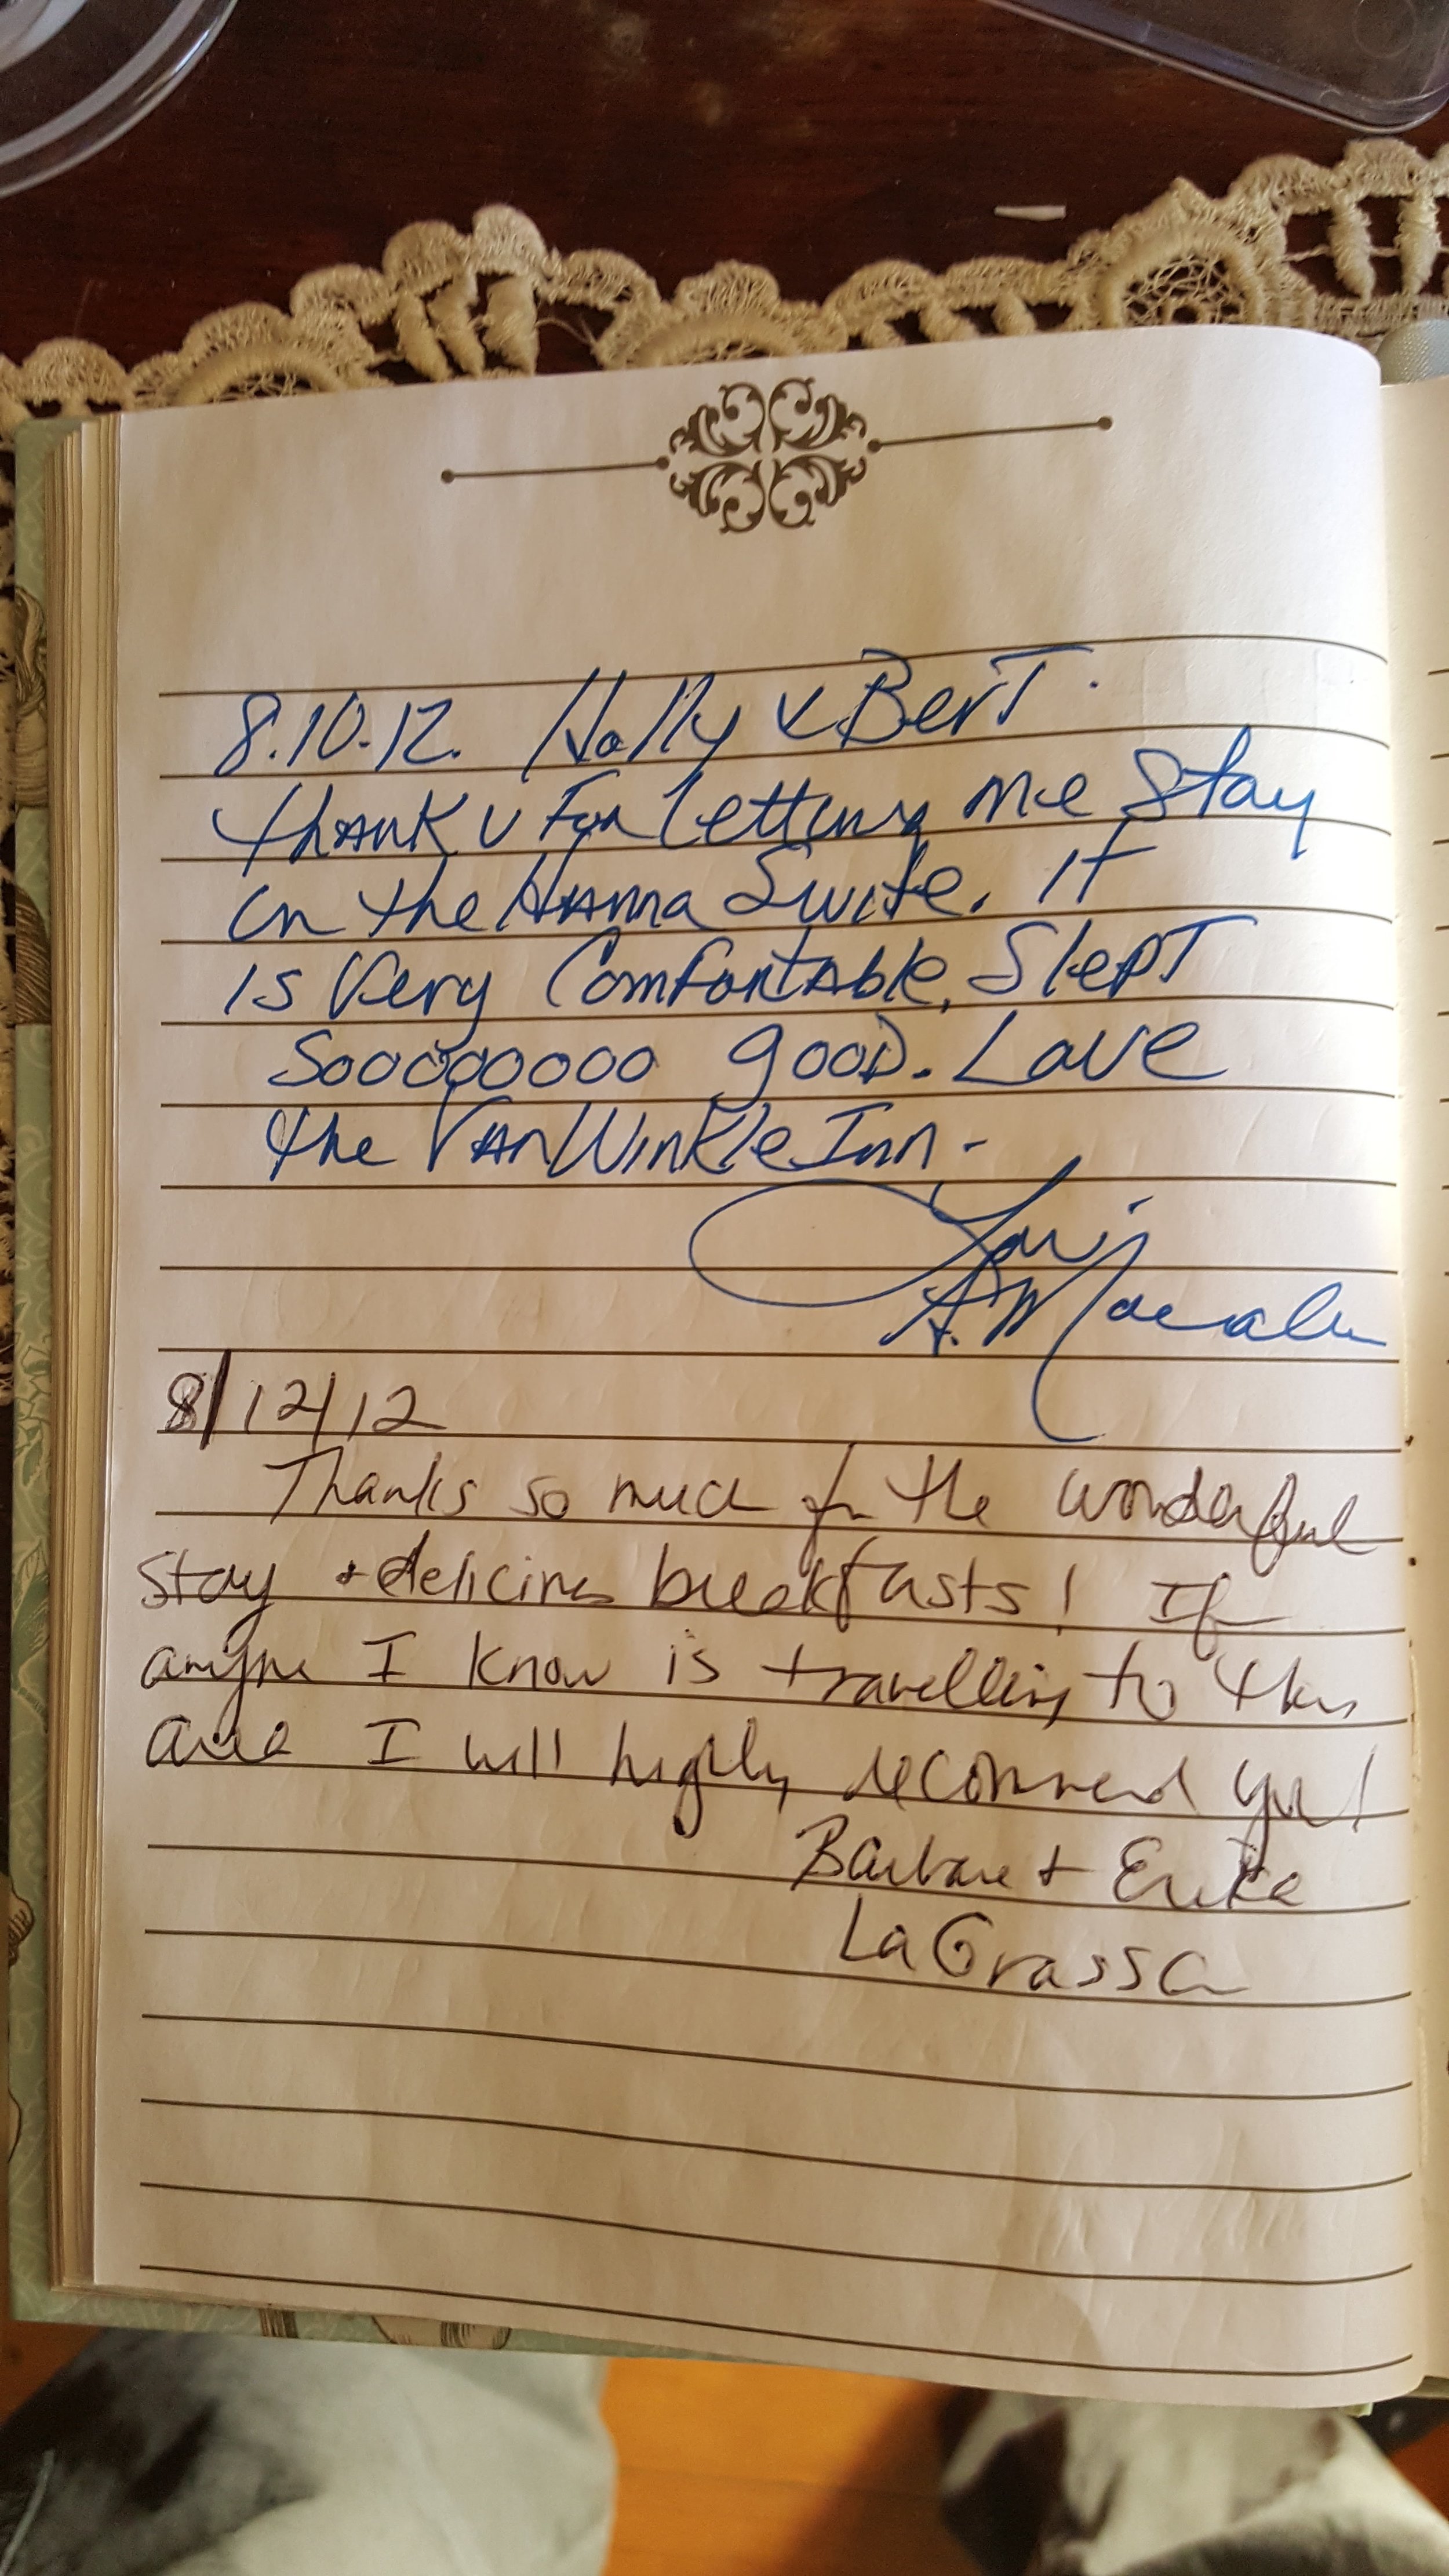 8.10.12. Holly & Bert.
thank u For letting me Stay
in the Hanna Suite. It
is Very Comfortable, Slept
Sooooooooo gooD. Love
the VanWinkle Inn -
Lori
A.
8/12/12
Thanks so much for the wonderful
stay + delicious breakfasts! If
anyone I know is travelling to this
area I will highly recommend you!
Barbara + Erika
LaGrassa